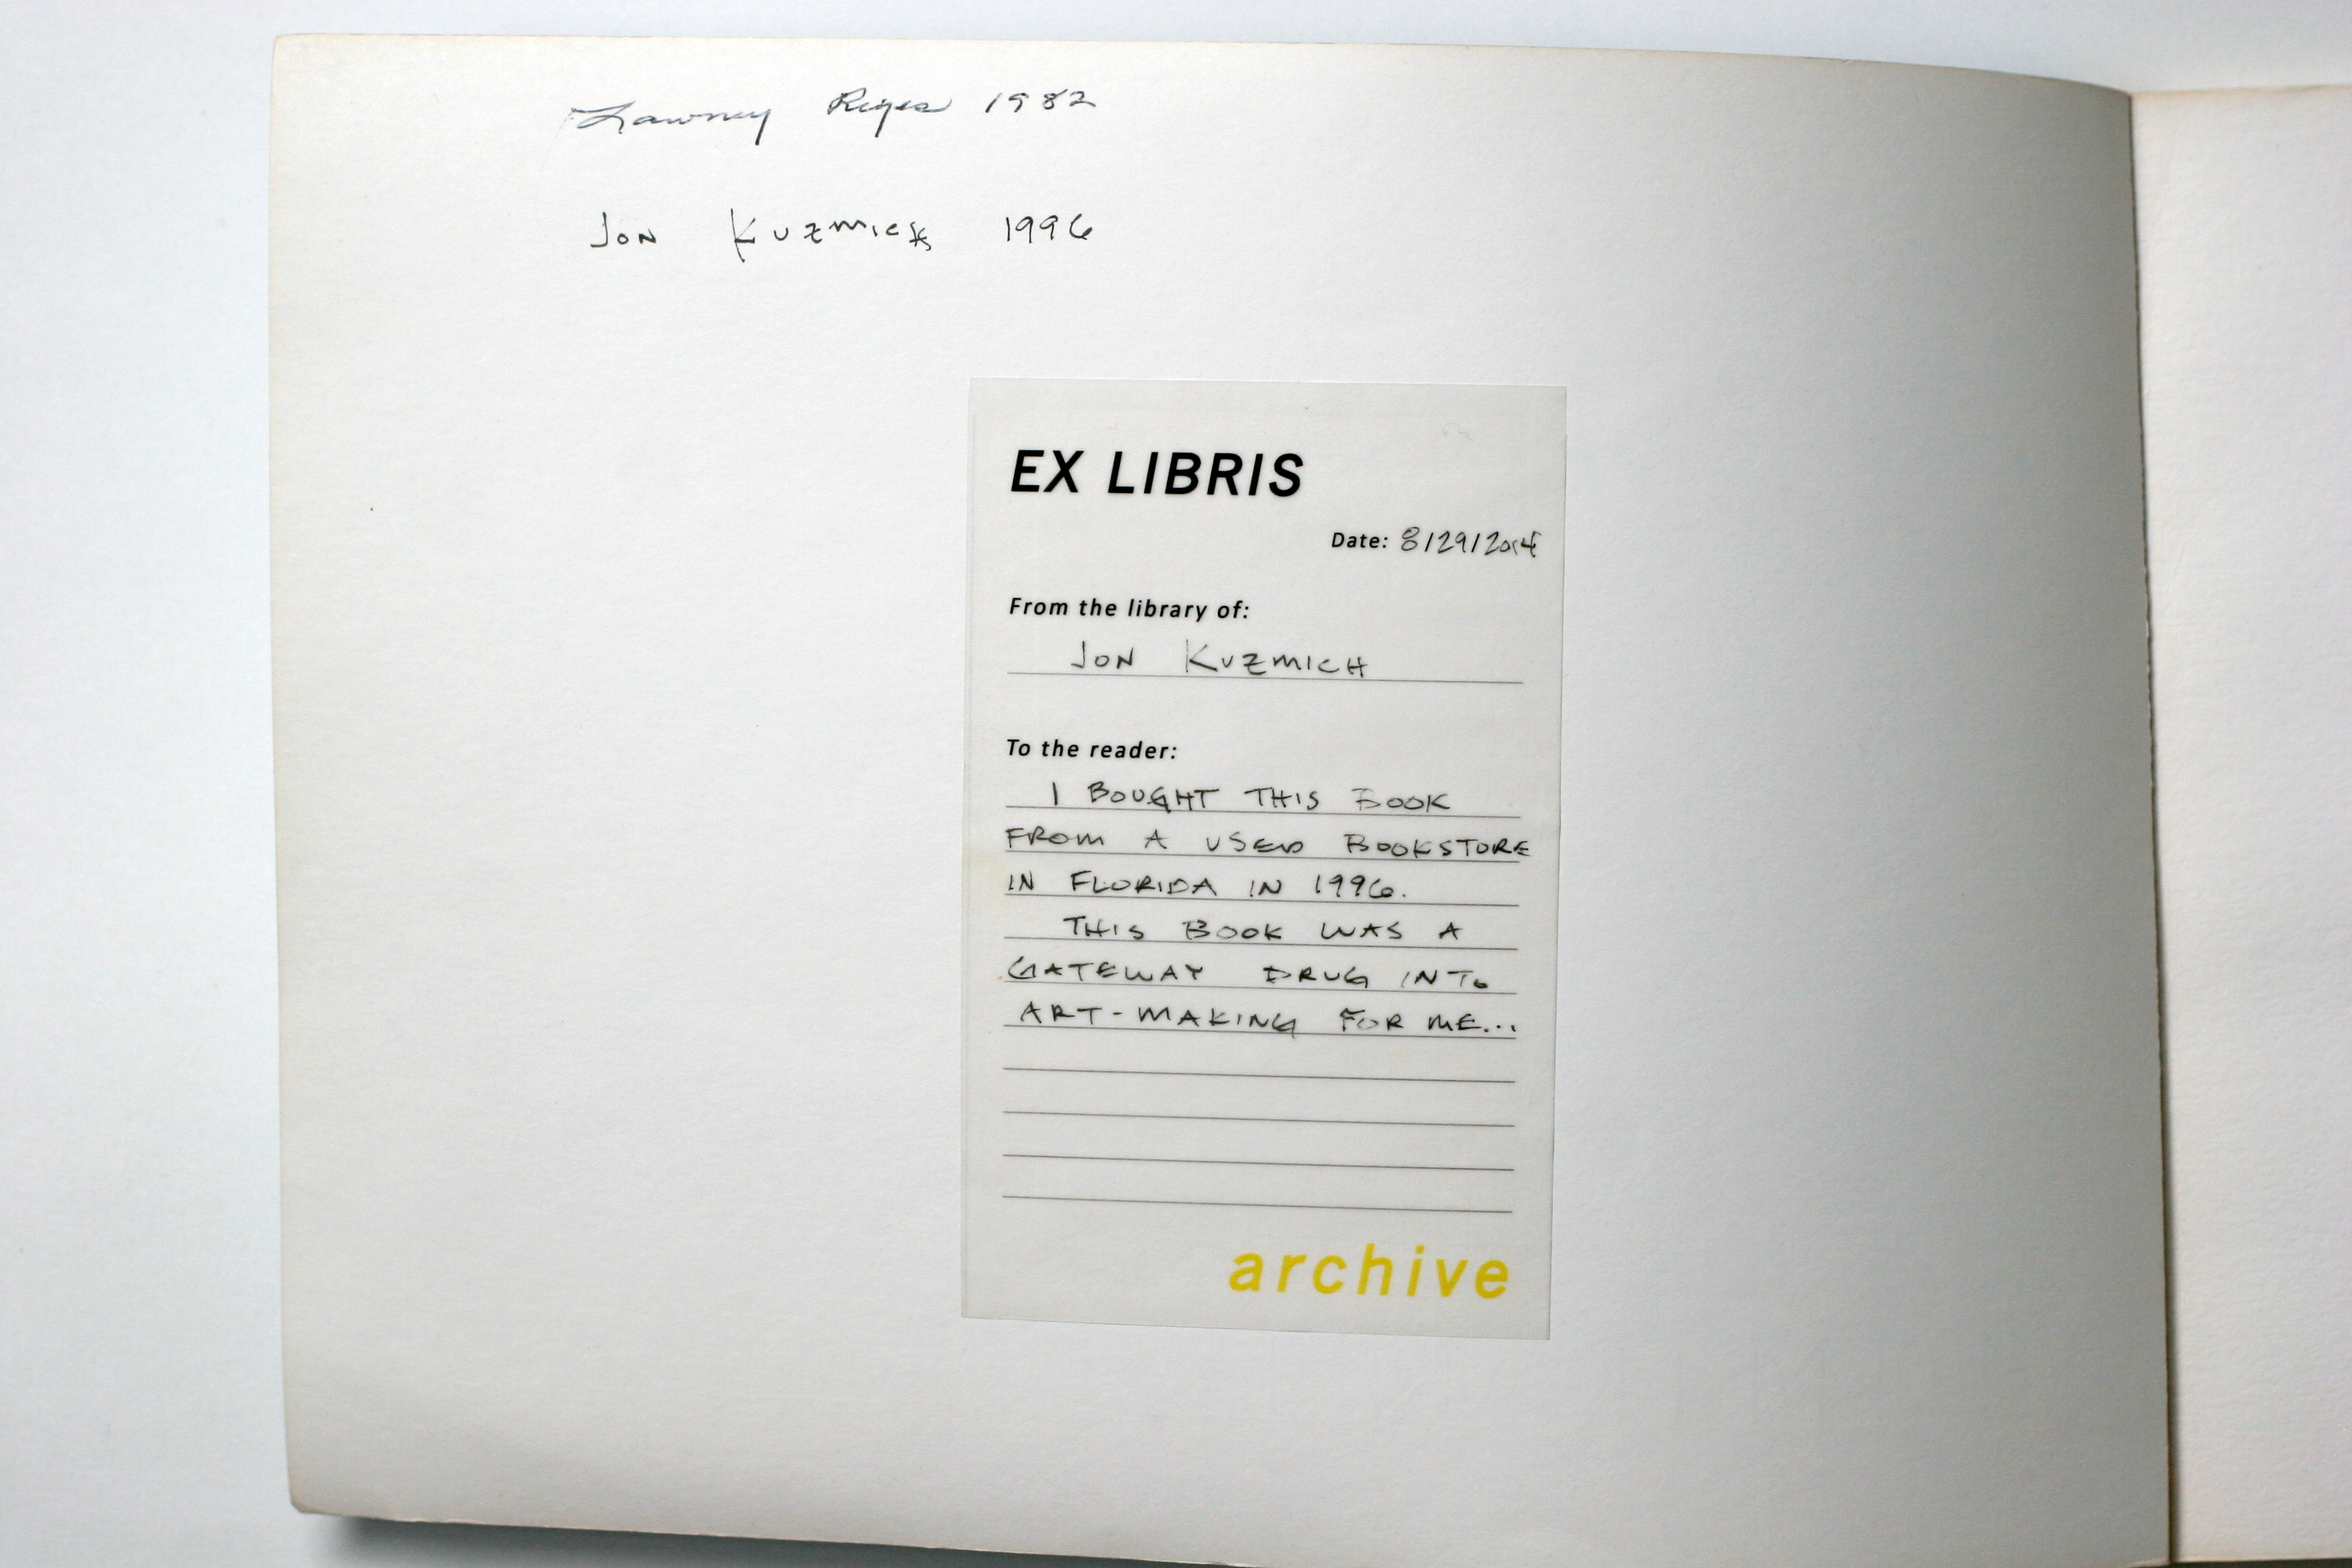 Lawney Reyes 1982
Jon Kuzmich 1996
EX LIBRIS
Date: 8/29/2014
From the library of:
JON KUZMICH
To the reader:
I BOUGHT THIS BOOK
FROM A USED BOOKSTORE
IN FLORIDA IN 1996.
THIS BOOK WAS A
GATEWAY DRUG INTO
ART-MAKING FOR ME...
archive